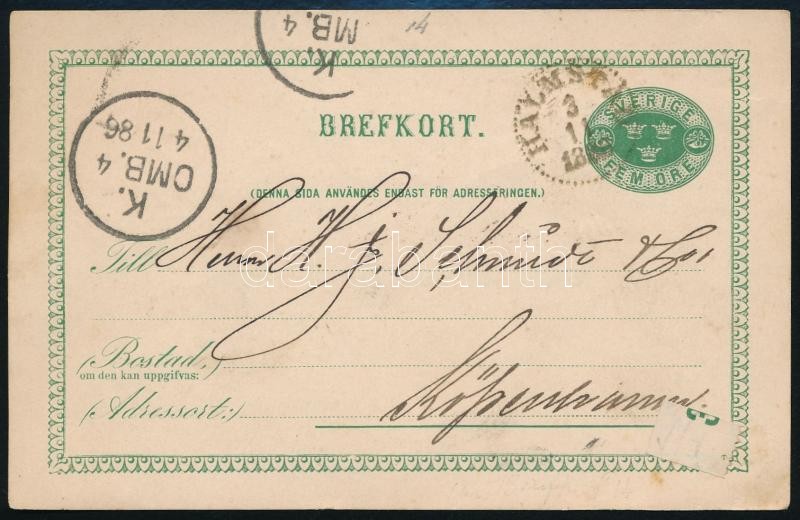 K.
OMB. 4
4 11 86
K.
MB. 4
14
HALMSTAD
3
11
SVERIGE
FEM ÖRE
BREFKORT.
(DENNA SIDA ANVÄNDES ENDAST FÖR ADRESSERINGEN.)
Till Herrn H. J. Schmidt & Co:
darabanth
(Bostad,
om den kan uppgifvas:
(Adressort:) Köpenhamn.